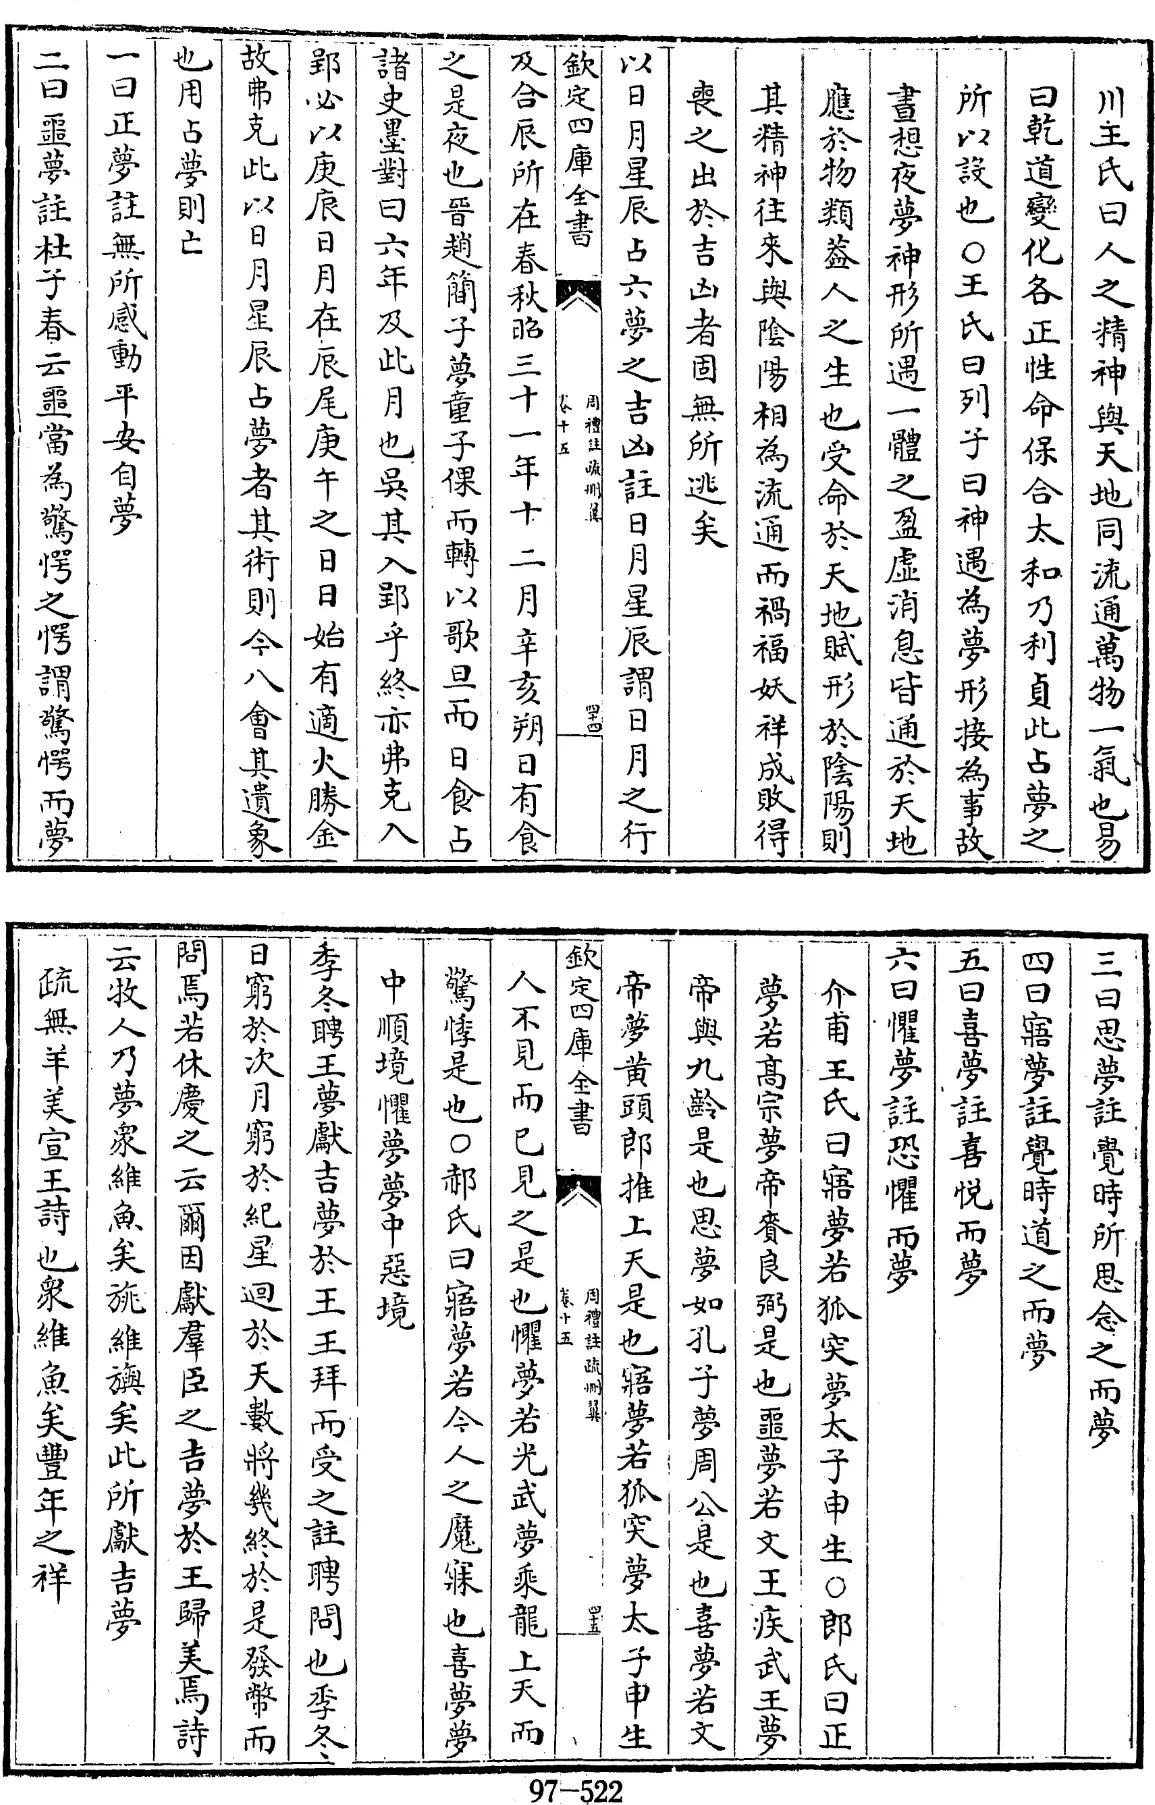 川王氏曰人之精神與天地同流通萬物一氣也易
曰乾道變化各正性命保合太和乃利貞此占夢之
所以設也〇王氏曰列子曰神遇為夢形接為事故
晝想夜夢神形所遇一體之盈虛消息皆通於天地
應於物類葢人之生也受命於天地賦形於陰陽則
其精神往來與陰陽相為流通而禍福妖祥成敗得
喪之出於吉凶者固無所逃矣
以日月星辰占六夢之吉凶註日月星辰謂日月之行
欽定四庫全書
周禮註疏刪翼
卷十五
四十四
及合辰所在春秋昭三十一年十二月辛亥朔日有食
之是夜也晉趙簡子夢童子倮而轉以歌旦而日食占
諸史墨對曰六年及此月也吳其入郢乎終亦弗克入
郢必以庚辰日月在辰尾庚午之日日始有適火勝金
故弗克此以日月星辰占夢者其術則今八會其遺象
也用占夢則亡
一曰正夢註無所感動平安自夢
二曰噩夢註杜子春云噩當為驚愕之愕謂驚愕而夢
三曰思夢註覺時所思念之而夢
四曰寤夢註覺時道之而夢
五曰喜夢註喜悅而夢
六曰懼夢註恐懼而夢
介甫王氏曰寤夢若狐突夢太子申生〇郎氏曰正
夢若高宗夢帝賚良弼是也噩夢若文王疾武王夢
帝與九齡是也思夢如孔子夢周公是也喜夢若文
帝夢黃頭郎推上天是也寤夢若狐突夢太子申生
欽定四庫全書
周禮註疏刪翼
卷十五
四十五
人不見而已見之是也懼夢若光武夢乘龍上天而
驚悸是也〇郝氏曰寤夢若今人之魔寐也喜夢夢
中順境懼夢夢中惡境
季冬聘王夢獻吉夢於王王拜而受之註聘問也季冬
日窮於次月窮於紀星迴於天數將幾終於是發幣而
問焉若休慶之云爾因獻羣臣之吉夢於王歸美焉詩
云牧人乃夢衆維魚矣旐維旟矣此所獻吉夢
疏無羊美宣王詩也衆維魚矣豐年之祥
97-522